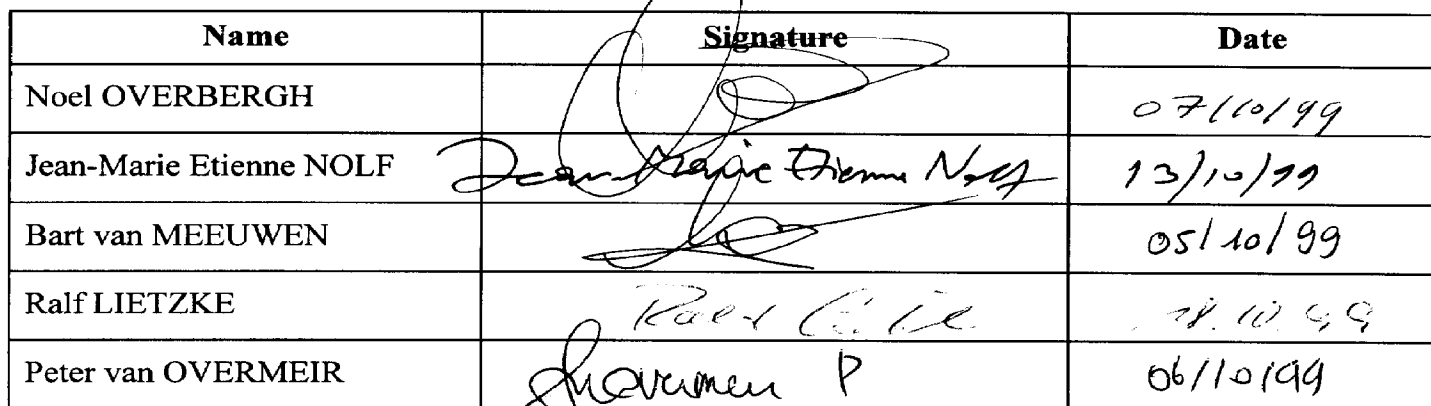 Name Signature Date
Noel OVERBERGH 07/10/99
Jean-Marie Etienne NOLF Jean-Marie Etienne Nolf 13/10/99
Bart van MEEUWEN 05/10/99
Ralf LIETZKE Ralf 18.10.99
Peter van OVERMEIR P 06/10/99